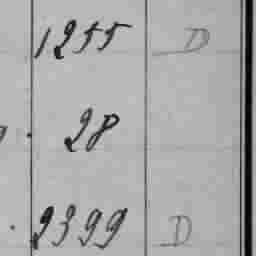 1255 D
28
2399 D